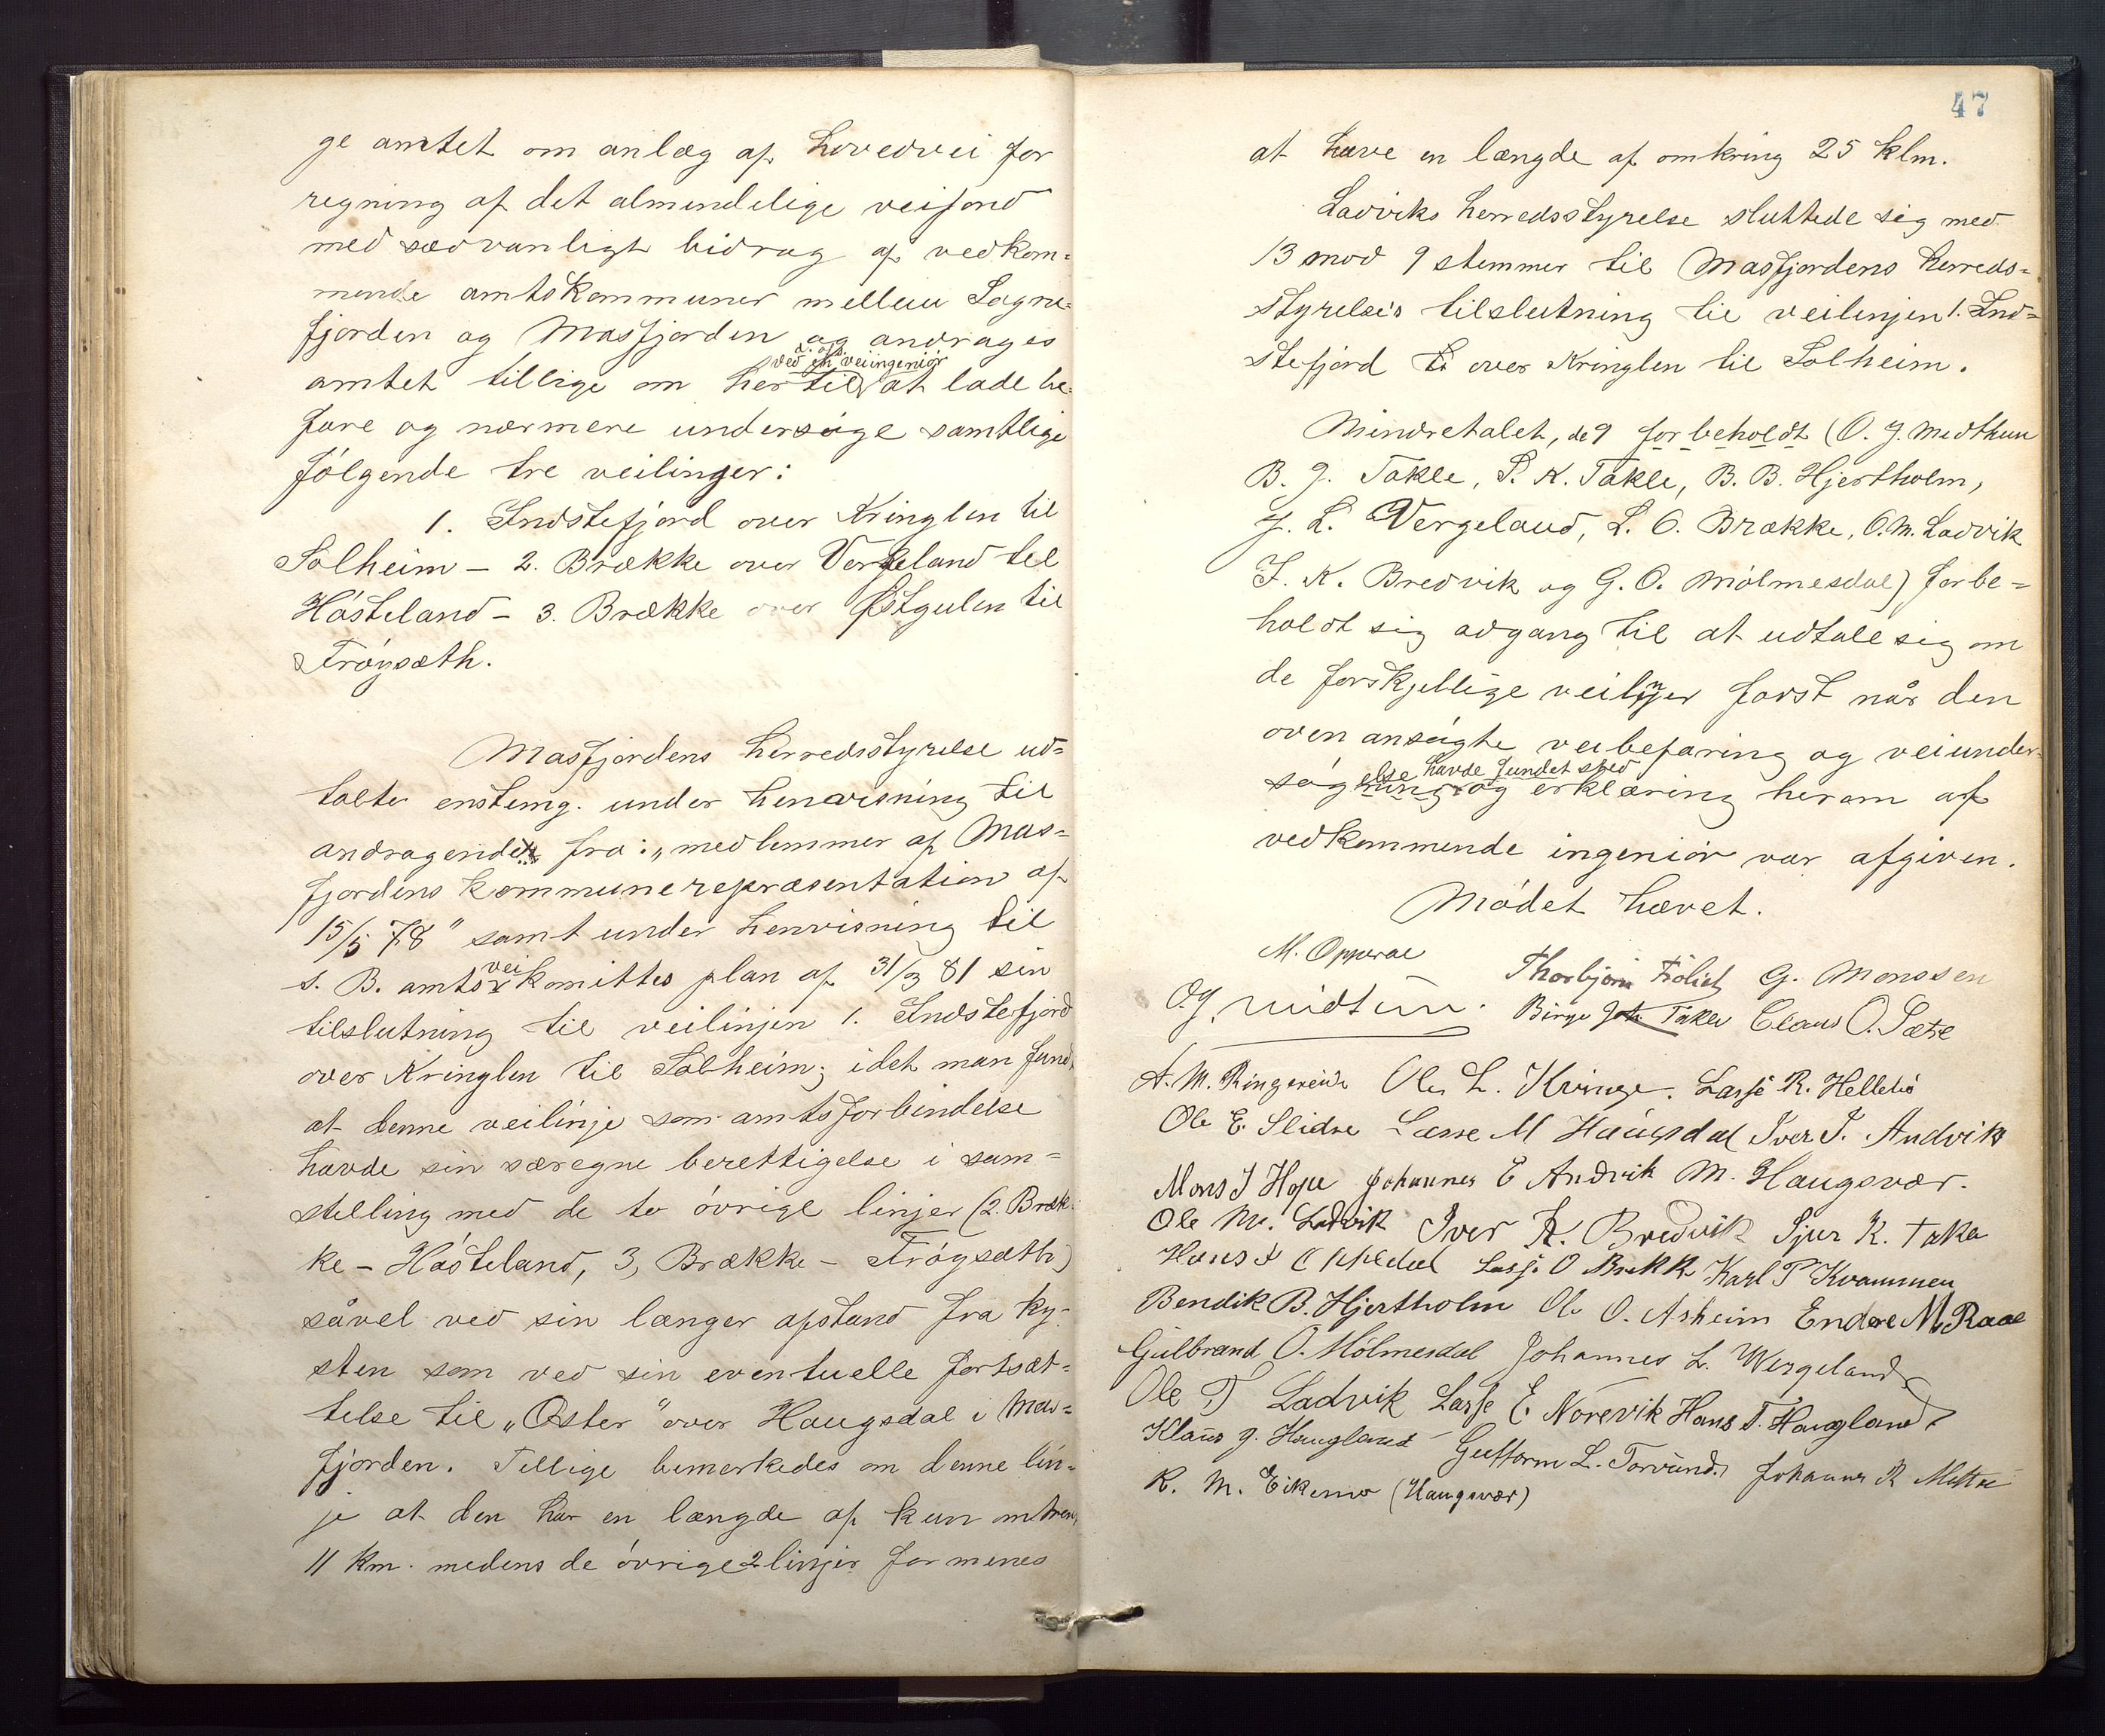 ge amtet om anlæg af hovedvei for
regning af det almindelige veifond
med sædvanligt bidrag af vedkom=
mende amtskommuner mellem Sogne=
fjorden og Masfjorden og andrages
ved en veiingeniör
amtet tillige om hertil at lade be=
fare og nærmere undersöge samtlige
fölgende tre veilinjer:
1. Indstefjord over Kringlen til
Solheim – 2. Brække over Vergeland til
Hósteland – 3. Brække over Østgulen til
Tröysæth.
Masfjordens herredsstyrelse ud=
talte enstemg. under henvisning til
andragende fra: „medlemmer af Mas=
fjordens kommunerepræsentation af
15/5 78" samt under henvisning til
vei
s. B. amts komittes plan af 31/3 81 sin
tilslutning til veilinjen 1. Indstefjord
over Kringlen til Solheim; idet man fandt
at denne veilinje som amtsforbindelse
havde sin særegne berettigelse i sam=
stilling med de to óvrige linjer (2. Bræk=
ke – Hósteland, 3, Brække – Tröysæth)
såvel ved sin længer afstand fra ky=
sten som ved sin eventuelle fortsæt=
telse til „Oster" over Haugsdal i Mas=
fjorden. Tillige bemerkedes om denne lin=
je at den har en længde af kun omtrent
11 km. medens de óvrige 2 linjer formenes
47
at have en længde af omkring 25 klm.
Ladviks herredsstyrelse sluttede sig med
13 mod 9 stemmer til Masfjordens herreds=
styrelses tilslutning til veilinjen 1. Ind=
stefjord over Kringlen til Solheim.
Mindretalet, de 9 forbeholdt (O. J. Midthun
B. J. Takle, S. K. Takle, B. B. Hjertholm,
J. L. Vergeland, L. O. Brække, O. M. Ladvik
I. K. Bredvik og G. O. Mólmesdal) forbe=
holdt sig adgang til at udtale sig om
de forskjellige veilinjer först når den
oven ansögte veibefaring og veiunder=
else havde fundet sted
søgning og erklæring herom af
vedkommende ingeniór var afgiven.
Módet hævet.
M. Opperae
Thorbjörn Frölich G. Monssen
O.J. Midtun. Birge Joh. Takle Claus O. Sætre
A. M. Ringereide Ole L. Kringe. Lasse R. Hellebö
Ole E. Slidre Lasse M Haugsdal Iver T. Andvik
Mons J Hope Johannes E Andvik M. Haugsvær.
Ole M. Ladvik Iver K. Bredvik Sjur K. Takle
Hans Oppedal Lasse O Brekk Karl P Kvammen
Bendik B. Hjertholm Ole O. Asheim Endre M. Raae
Gulbrand O. Mólmesdal Johannes L. Wergeland
Ole T Ladvik Lasse E. Norevik Hans T. Haugland
Klaus J. Haugland Guttorm L. Torvund. Johannes R Mettre
K. M. Eikemo (Haugsvær)